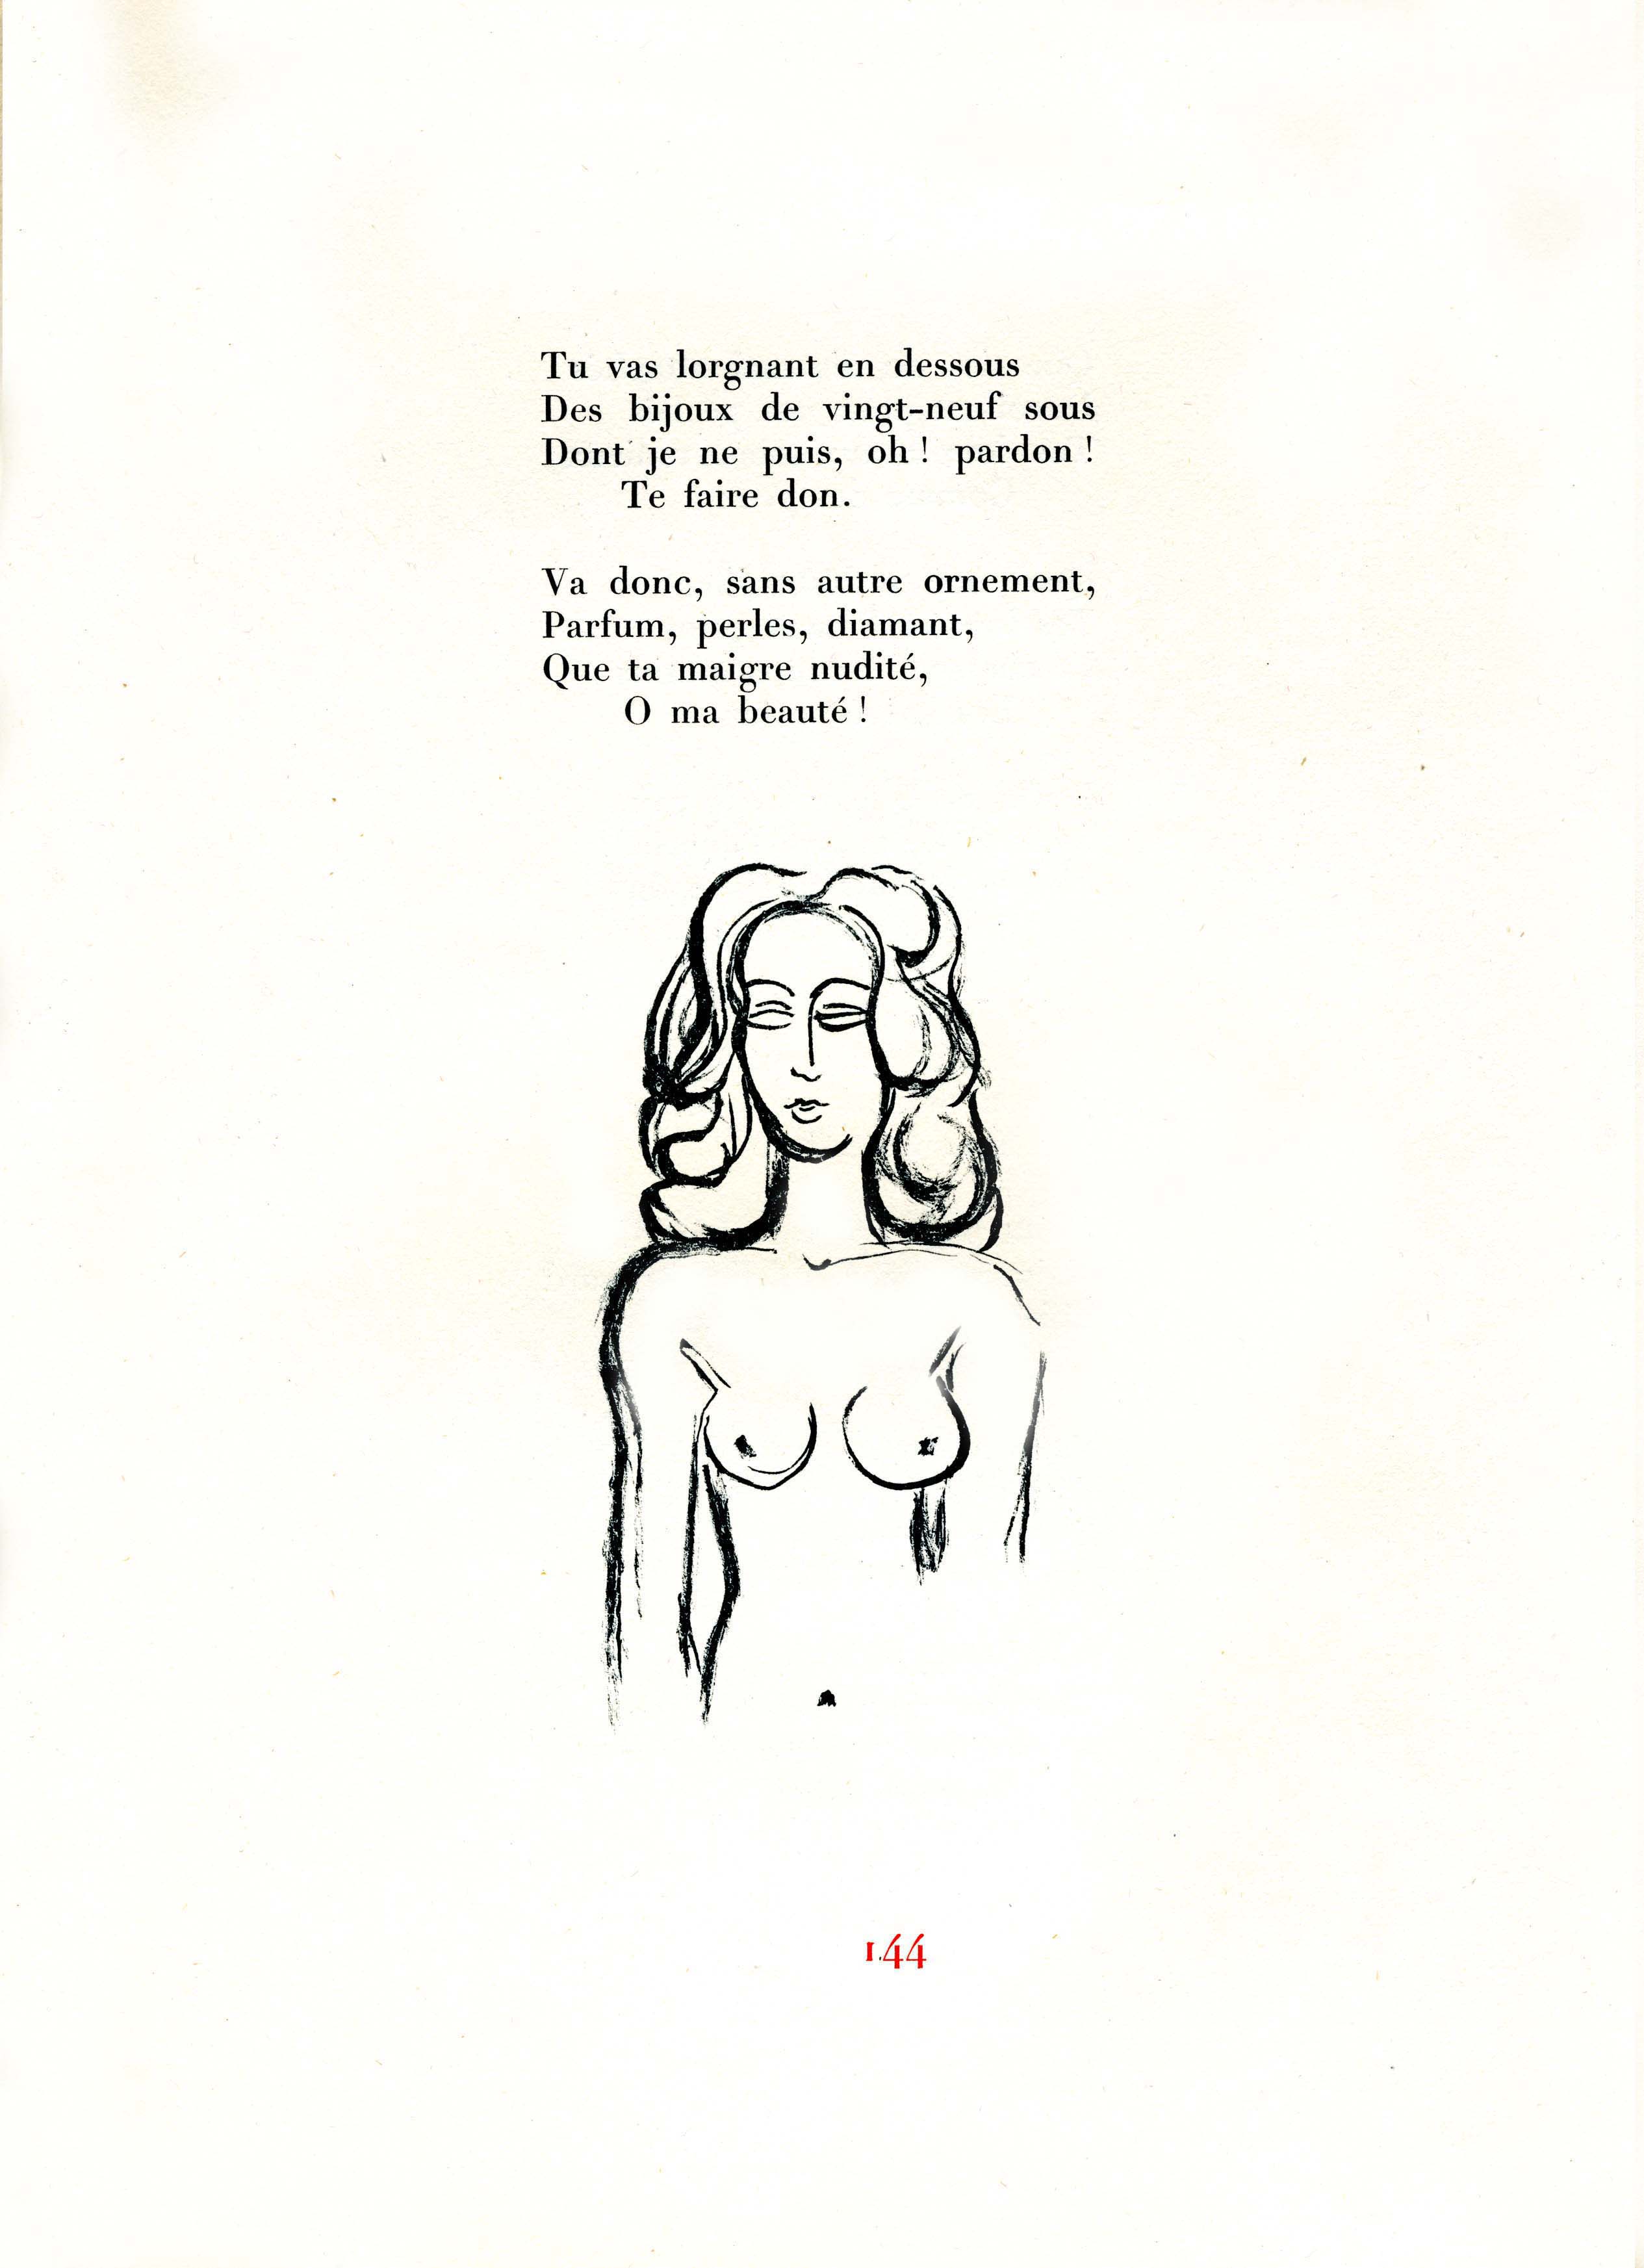 Tu vas lorgnant en dessous
Des bijoux de vingt-neuf sous
Dont je ne puis, oh ! pardon !
Te faire don.
Va donc, sans autre ornement,
Parfum, perles, diamant,
Que ta maigre nudité,
O ma beauté !
144